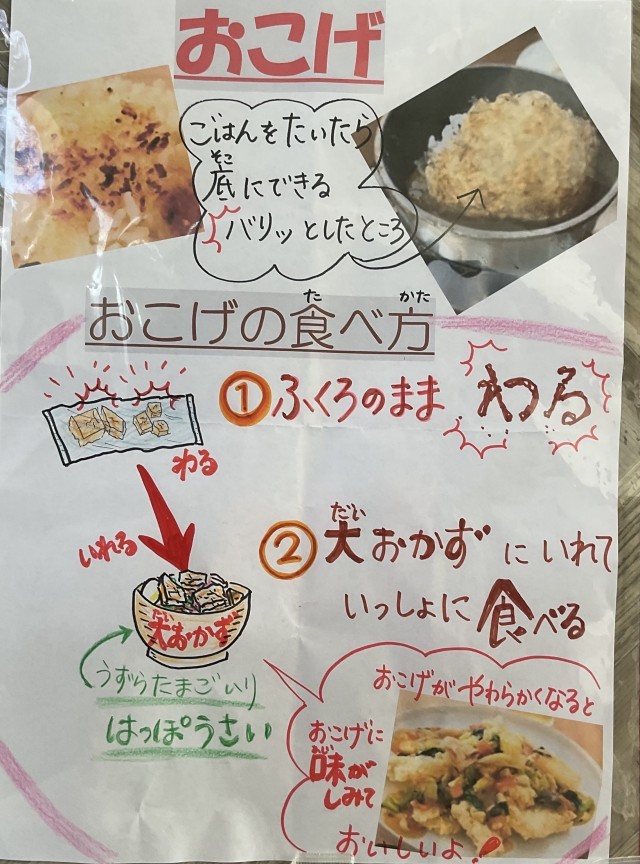 おこげ
ごはんをたいたら
そこ
底にできる
バリッとしたところ
た かた
おこげの食べ方
①ふくろのまま わる
わる
いれる
だい
②大おかずにいれて
いっしょに食べる
だい
大おかず
うずらたまごいり
はっぽうさい
おこげがやわらかくなると
おこげに
あじ
味が
しみて
おいしいよ!